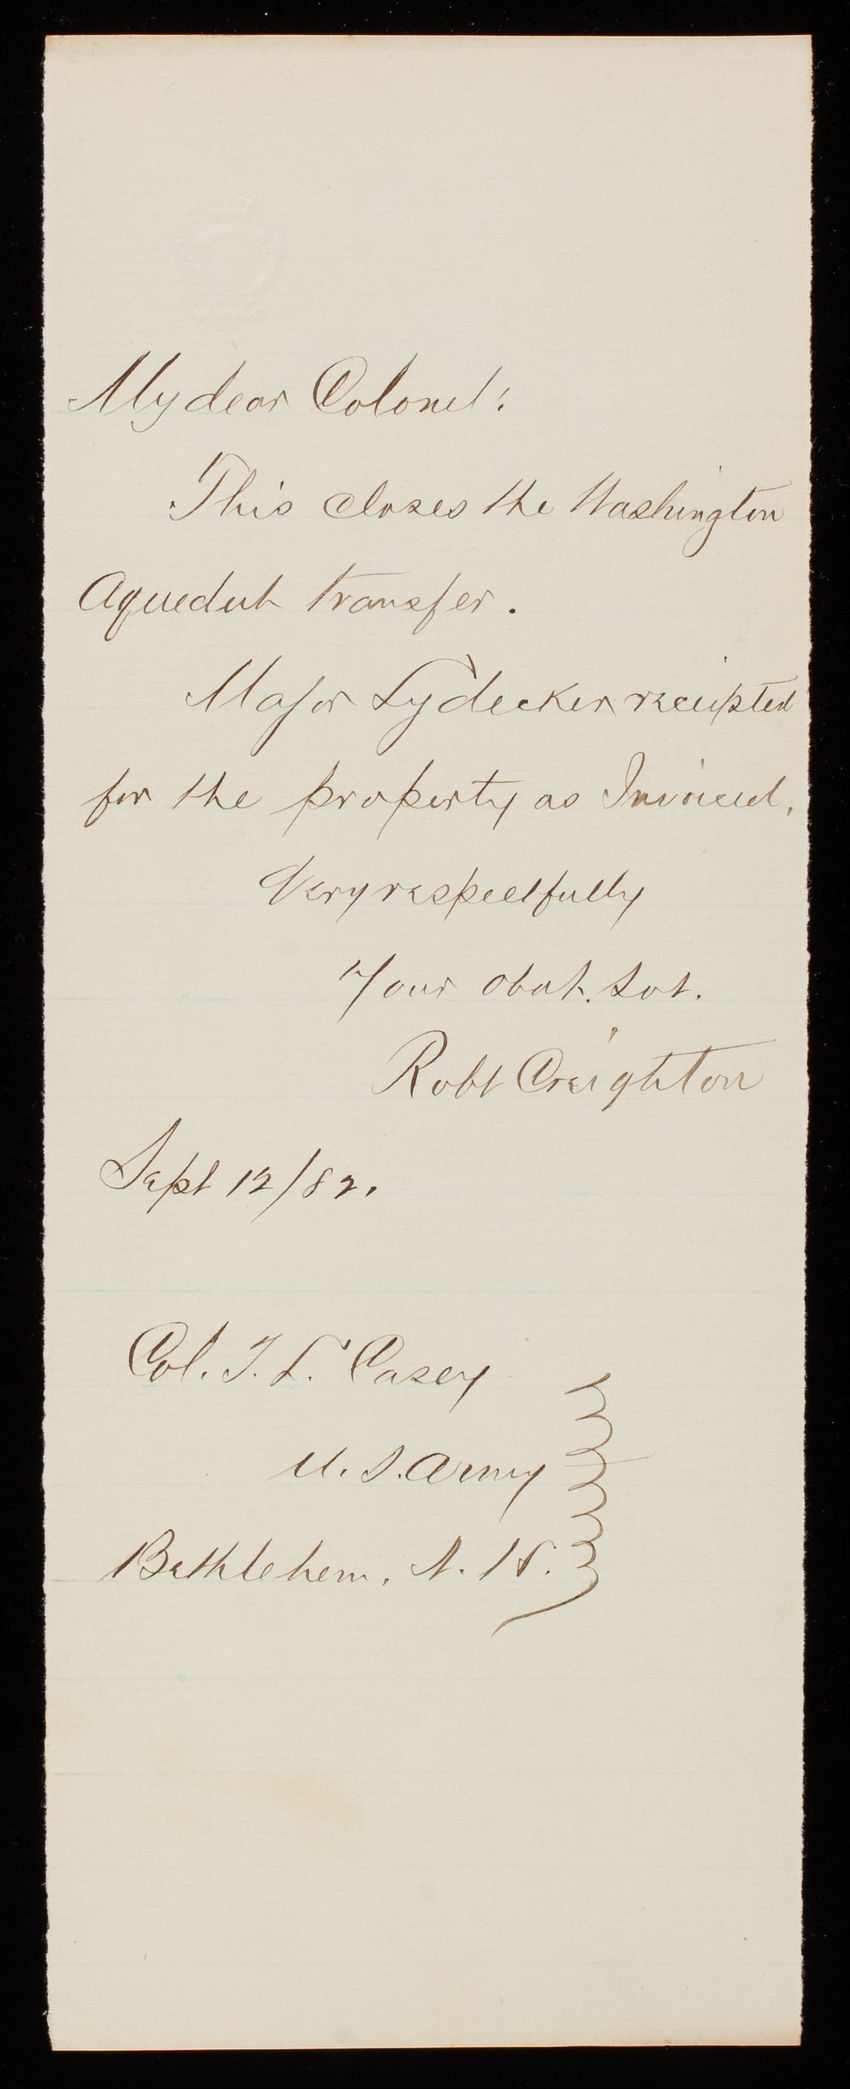 My dear Colonel:
This closes the Washington
Aqueduct transfer.
Major Lydecker receipted
for the property as Invoiced.
Very respectfully
Your obdt. Svt.
Robt Creighton
Sept 12/82.
Col. T. L. Casey
U. S. Army
Bethlehem, N. H.